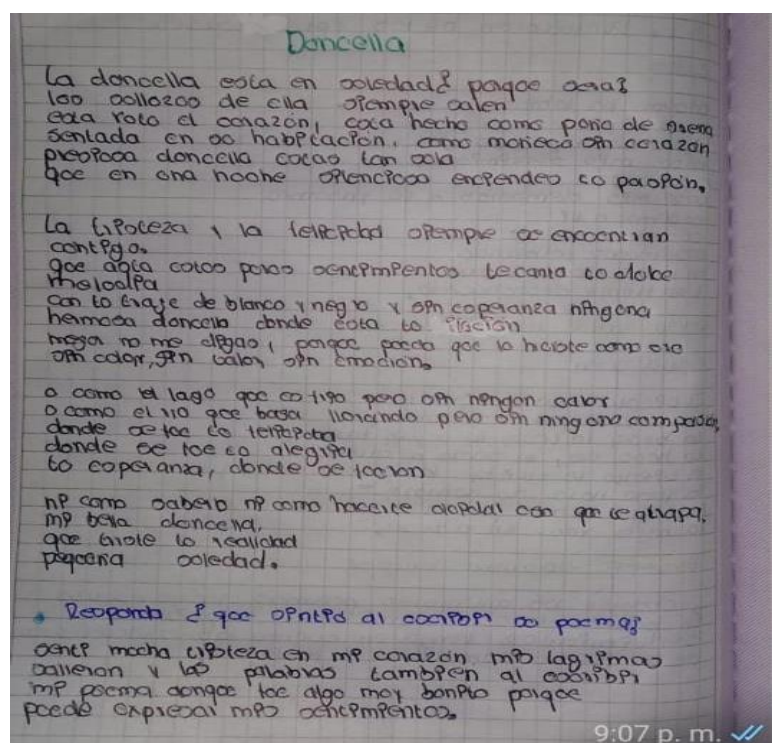 Doncella
La doncella esta en soledad? porque sera?
los sollozos de ella siempre salen
esta roto el corazón, esta hecho como poño de arena
sentada en su habitación, como moñeca sin corazón
preciosa doncella estas tan sola
que en una noche silenciosa enciendes tu pasión.
La tristeza y la felicidad siempre se encuentran
contigo.
que agita estos puros sentimientos te canta tu dulce
melodía
con tu traje de blanco y negro y sin esperanza ninguna
hermosa doncella donde esta tu ilusión
no me digas, porque puedo que la hiciste como eso
sin color, sin valor, sin emoción.
o como el lago que es tibio pero sin ningun calor
o como el rio que baja llorando pero sin ninguna compasión
donde se fue tu felicidad
donde se fue tu alegría
tu esperanza, donde se fueron
ni como saberlo ni como hacerte con que te atrapa.
mi bella doncella,
que triste tu realidad
pequeña soledad.
Responda ¿ que sintió al escribir su poema?
senti mucha tristeza en mi corazón mis lagrimas
salieron y las palabras tambien al escribir
mi poema aunque fue algo muy bonito porque
puede expresar mis sentimientos.
9:07 p. m.